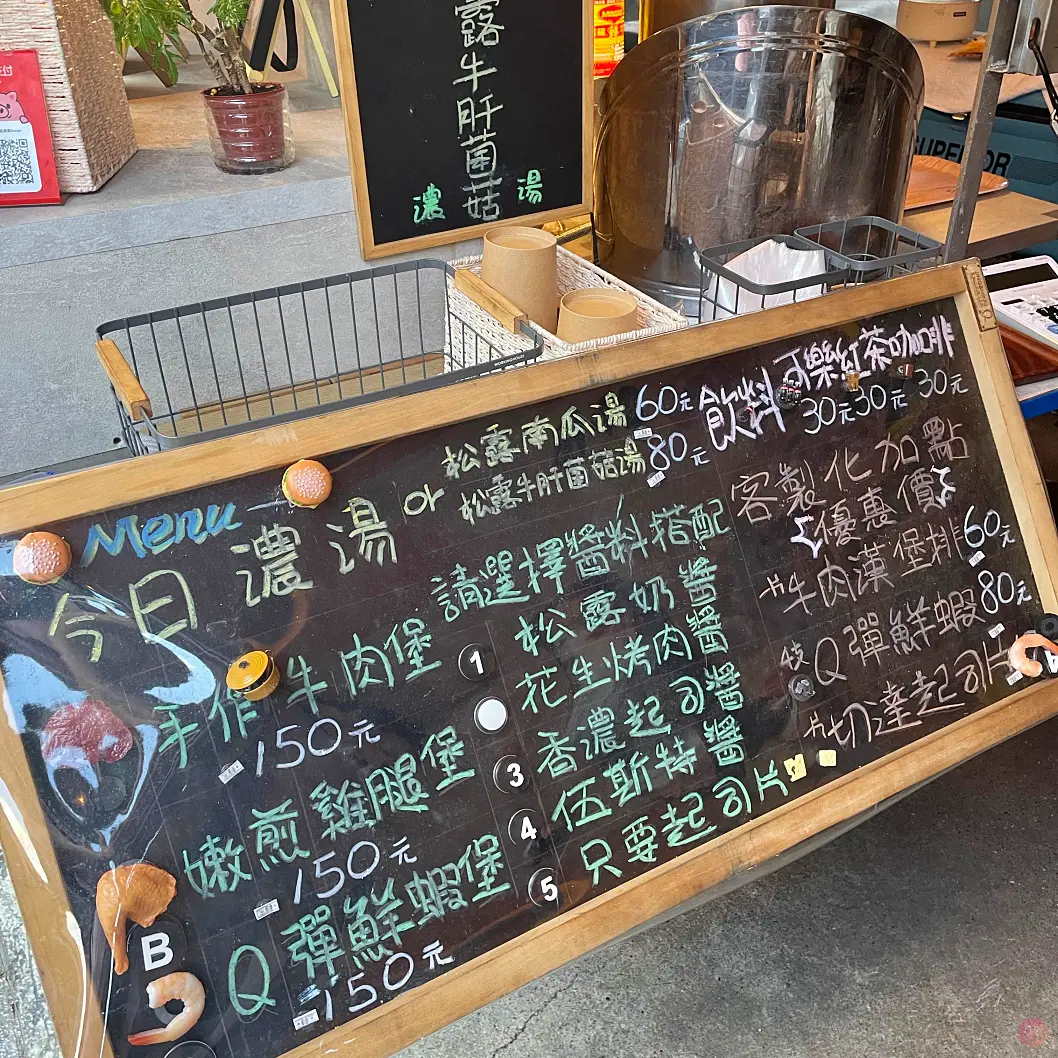 支付
露牛肝菌菇
濃 湯
SUPERIOR
Menu
今日濃湯 or
松露南瓜湯 60元
松露牛肝菌菇湯 80元
飲料
可樂 紅茶 咖啡
30元 30元 30元
手作牛肉堡
150元
嫩煎雞腿堡
150元
Q彈鮮蝦堡
150元
B
請選擇醬料搭配
1 松露奶醬
花生烤肉醬
3 香濃起司醬
4 伍斯特醬
5 只要起司片
客製化加點
優惠價
牛肉漢堡排 60元
Q彈鮮蝦 80元
切達起司片